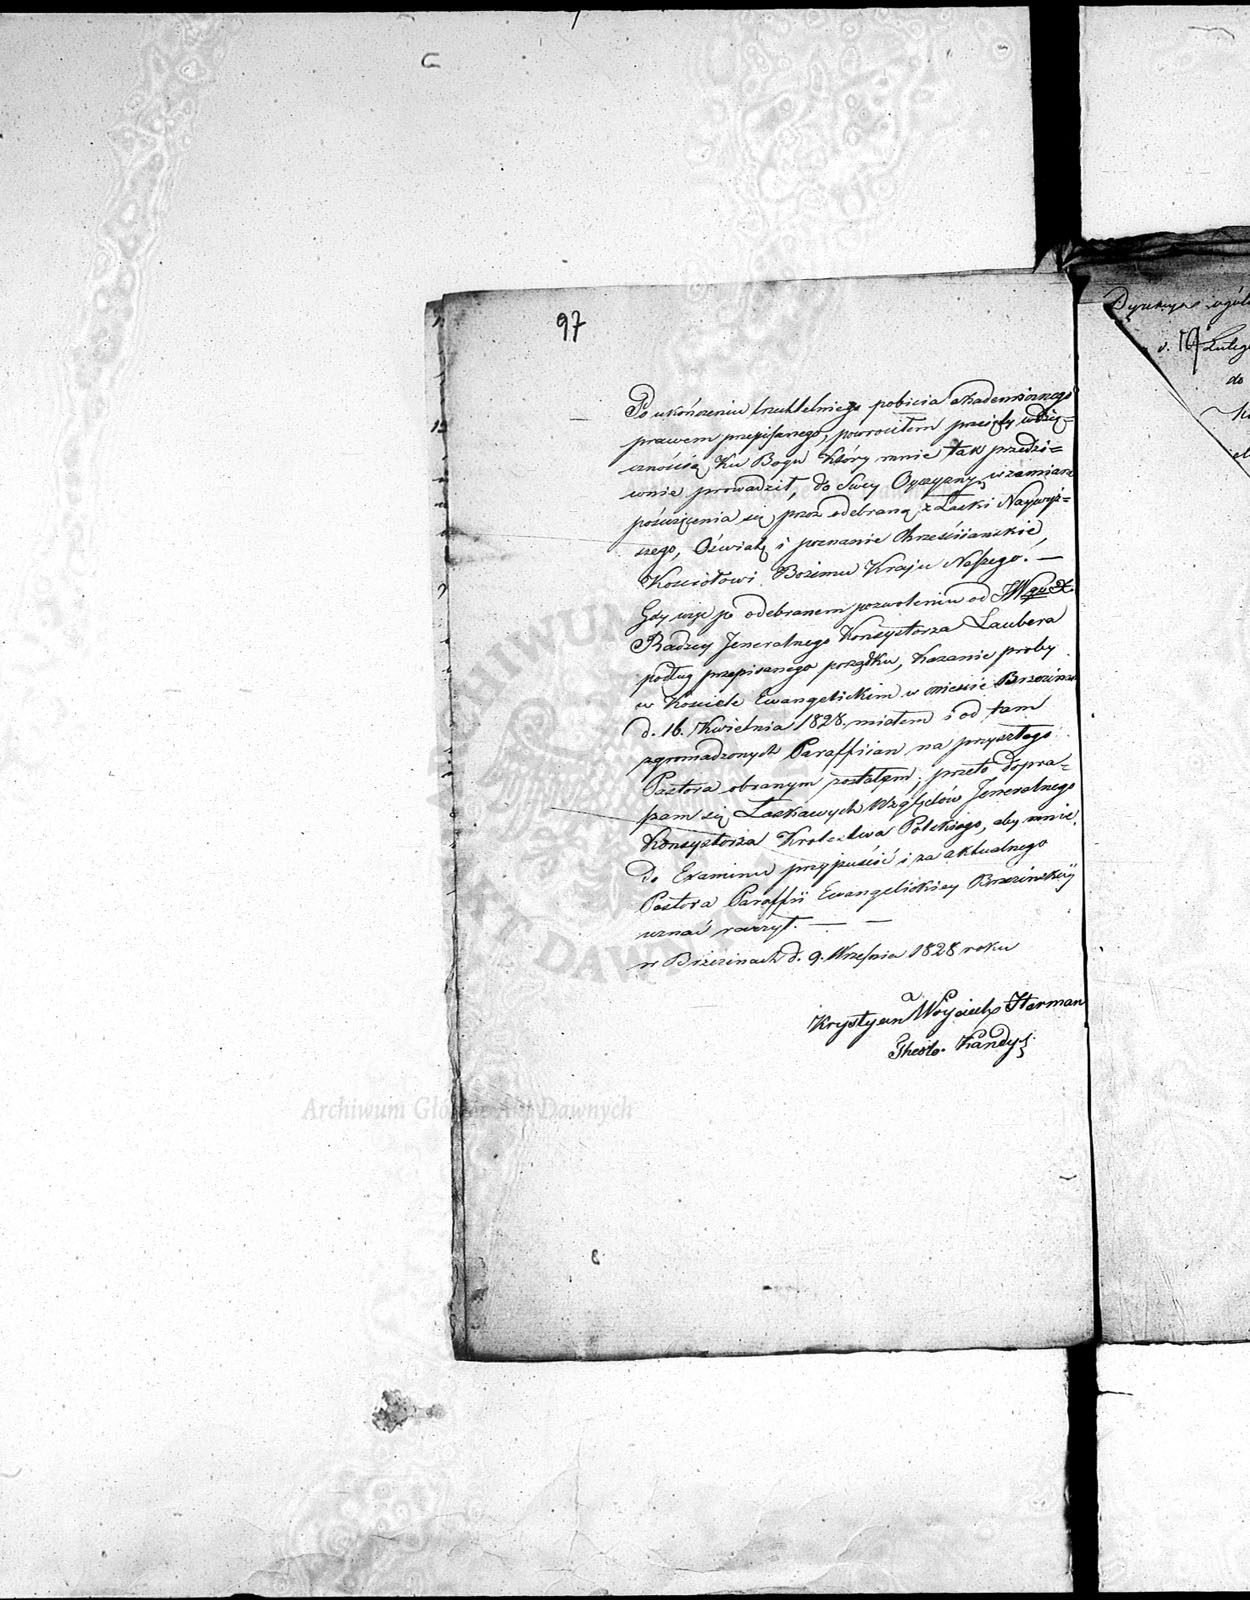 97
Po ukończeniu trzechletniego pobicia akademicznego
prawem przepisanego, powrociłem przeięty wdzię=
cznością Ku Bogu Który mnie tak przedzi=
wnie prowadził, do Swey Oyczyzny, w zamiarze
poświęcenia się przez odebraną z Łaski Naywyż=
szego, Oświatę i poznanie Chrześciianskie,
Kościołowi Bożemu Kraju Naszego. —
Gdy więc po odebranem pozwoleniu od JW
Radzcy Jeneralnego Konsystorza Laubera
podług przepisanego porządku, Kazanie proby
w Kościele Ewangelickim w miescie Brzezinach
d. 16. Kwietnia 1828. miałem i od tam
zgromadzonych Paraffiian na przyszłego
Pastora obranym zostałem; przeto dopra=
szam się Łaskawych Względów Jeneralnego
Konsystorza Krolestwa Polskiego, aby mnie
do Examinu przypuścić i za aktualnego
Pastora Paraffii Ewangelickiey Brzezinskiy
uznać raczył. — —
w Brzezinach d. 9. Września 1828 roku
Krystyan Woyciech Harman
Theolo. Kandy:
Dyrekcya ogóln
d. 16 Luteg
do
Archiwum Główne Akt Dawnych
ARCHIWUM
AKT DAWNYCH